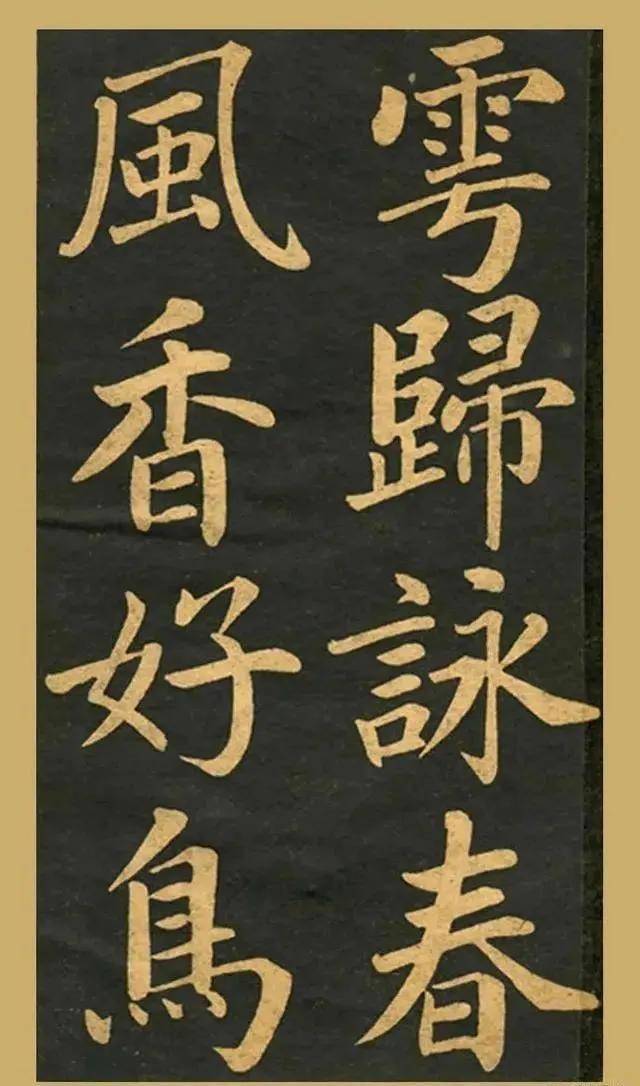 雩歸詠春
風香好鳥